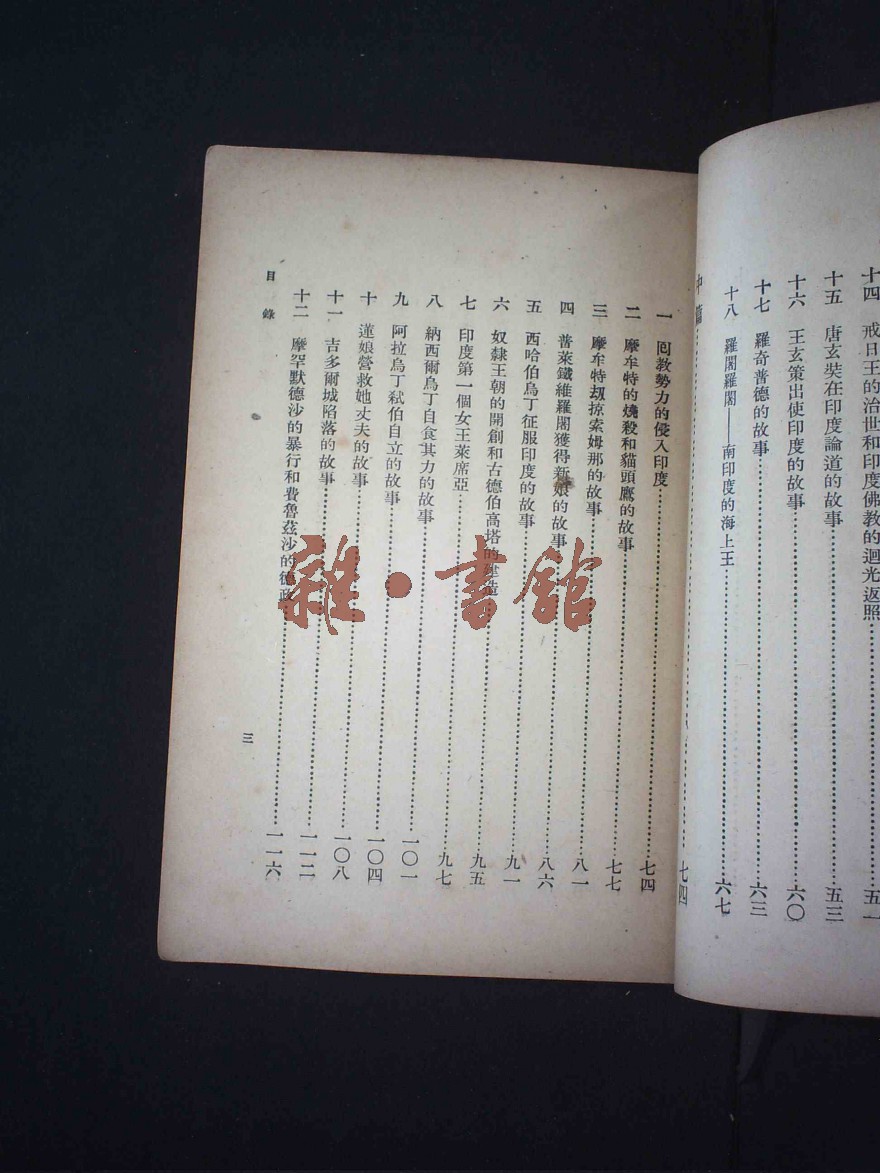 十四 戒日王的治世和印度佛教的迴光返照……五一
十五 唐玄奘在印度論道的故事……五三
十六 王玄策出使印度的故事……六〇
十七 羅奇普德的故事……六三
十八 羅閣羅閣——南印度的海上王……六七
中篇……七四
一 囘教勢力的侵入印度……七四
二 摩牟特的燒殺和貓頭鷹的故事……七七
三 摩牟特刼掠索姆那的故事……八一
四 普萊鐵維羅閣獲得新娘的故事……八六
五 西哈伯烏丁征服印度的故事……九一
六 奴隸王朝的開創和古德伯高塔的建造……九五
七 印度第一個女王萊席亞……九七
八 納西爾烏丁自食其力的故事……一〇一
九 阿拉烏丁弒伯自立的故事……一〇四
十 蓮娘營救她丈夫的故事……一〇八
十一 吉多爾城陷落的故事……一一二
十二 摩罕默德沙的暴行和費魯茲沙的德政……一一六
目錄
三
雜·書館